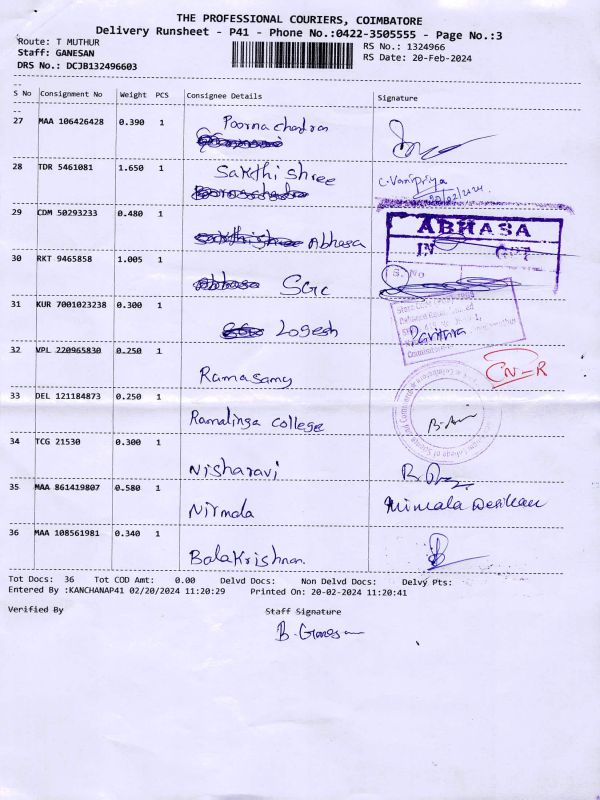 THE PROFESSIONAL COURIERS, COIMBATORE
Delivery Runsheet - P41 - Phone No.:0422-3505555 - Page No.:3
Route: T MUTHUR
RS No.: 1324966
Staff: GANESAN
RS Date: 20-Feb-2024
DRS No.: DCJB132496603
S No Consignment No Weight PCS Consignee Details Signature
27 MAA 106426428 0.390 1 Poornachandran
28 TDR 5461081 1.650 1 Sakthi Shree C. Vanipriya
20/02/2024.
29 CDM 50293233 0.480 1 Abhasa ABHASA
IN OUT
30 RKT 9465858 1.005 1 SGC S. No
31 KUR 7001023238 0.300 1 Logesh Pavithra
32 VPL 220965830 0.250 1 Ramasamy CN-R
33 DEL 121184873 0.250 1 Ramalinga college
34 TCG 21530 0.300 1 Nisharavi
35 MAA 861419807 0.580 1 Nirmala
36 MAA 108561981 0.340 1 Balakrishnan.
Tot Docs: 36 Tot COD Amt: 0.00 Delvd Docs: Non Delvd Docs: Delvy Pts:
Entered By :KANCHANAP41 02/20/2024 11:20:29 Printed On: 20-02-2024 11:20:41
Verified By Staff Signature
B. Ganesan